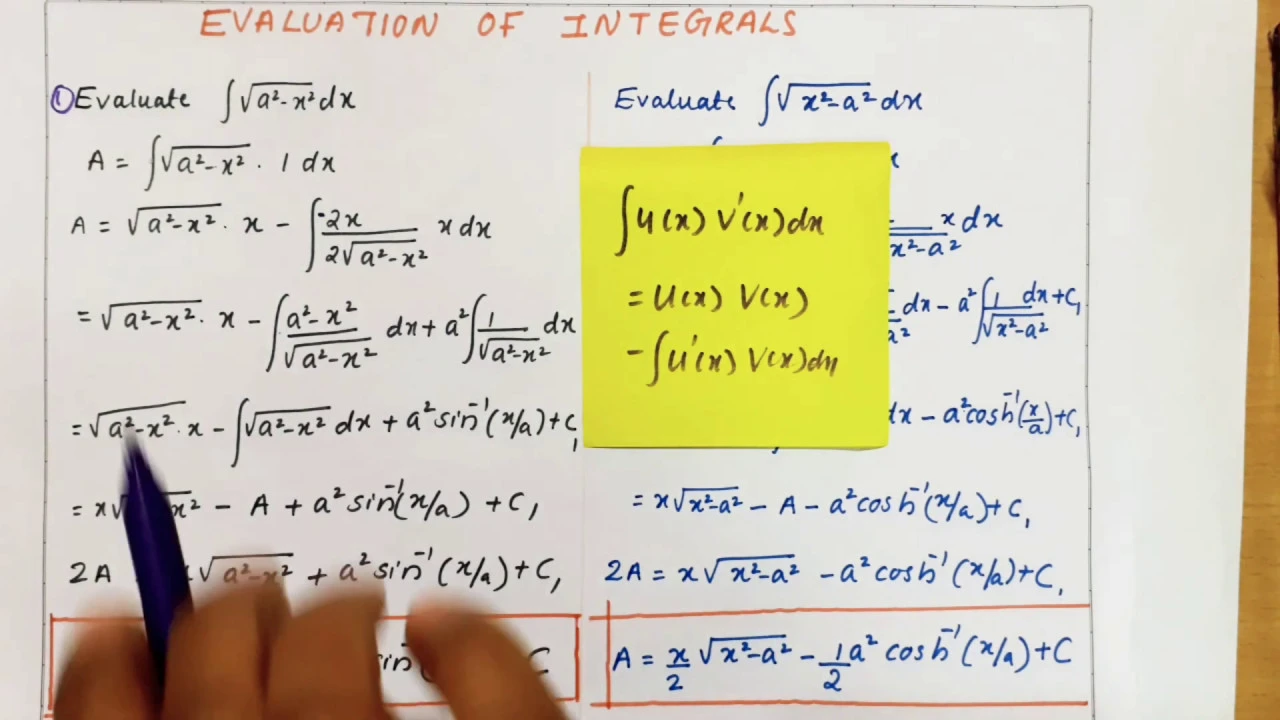 EVALUATION OF INTEGRALS
① Evaluate ∫√(a²-x²) dx
A = ∫√(a²-x²) . 1 dx
A = √(a²-x²) . x - ∫ -2x/(2√(a²-x²)) x dx
= √(a²-x²) . x - ∫ (a²-x²)/√(a²-x²) dx + a² ∫ 1/√(a²-x²) dx
= √(a²-x²) . x - ∫√(a²-x²) dx + a² sin⁻¹(x/a) + C₁
= x√ x² - A + a² sin⁻¹(x/a) + C₁
2A √(a²-x²) + a² sin⁻¹(x/a) + C₁
C
Evaluate ∫√(x²-a²) dx
∫u(x) v'(x) dx
= u(x) v(x)
- ∫u'(x) v(x) dx
x dx
x²-a²
dx - a² ∫ 1/√(x²-a²) dx + C₁
dx - a² cosh⁻¹(x/a) + C₁
= x√(x²-a²) - A - a² cosh⁻¹(x/a) + C₁
2A = x√(x²-a²) - a² cosh⁻¹(x/a) + C₁
A = x/2 √(x²-a²) - 1/2 a² cosh⁻¹(x/a) + C